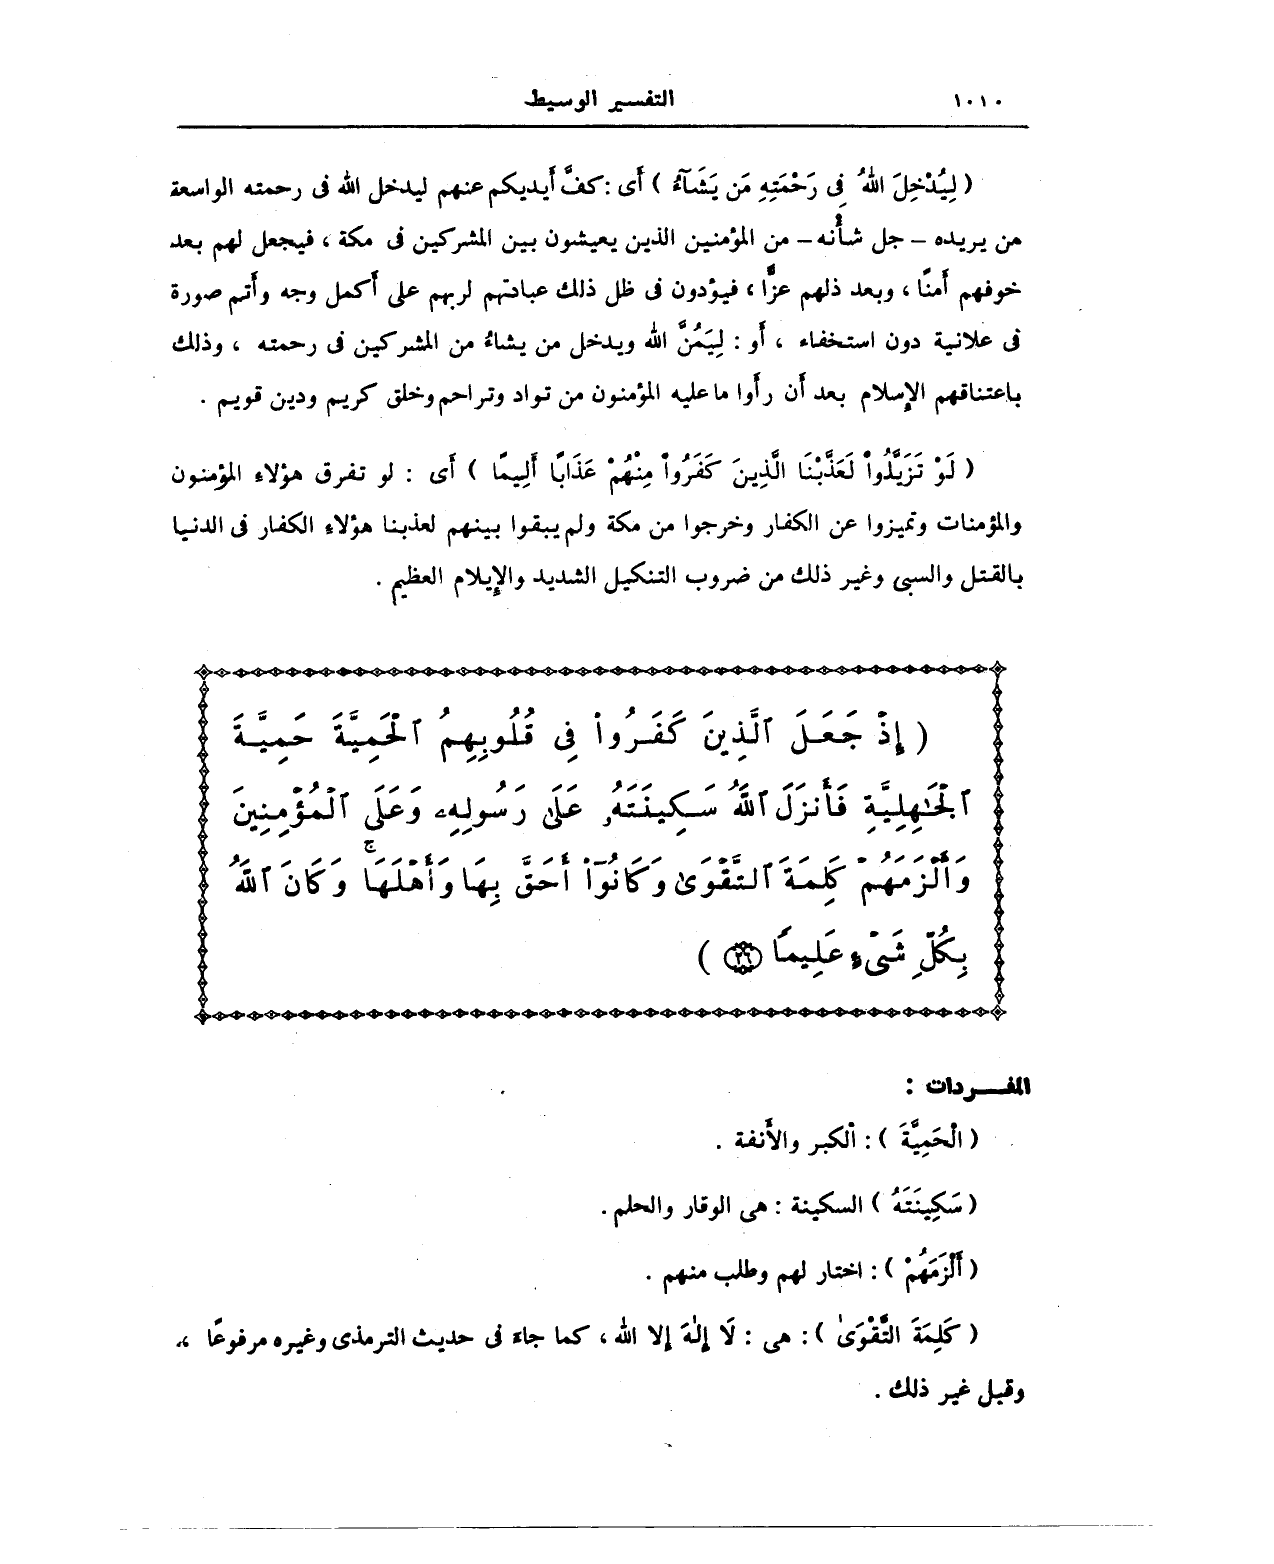 ١٠١٠ التفسير الوسيط
( لِيُدْخِلَ اللهُ فِى رَحْمَتِهِ مَن يَشَآءُ ) أَى : كفَّ أَيديكم عنهم ليدخل الله فى رحمته الواسعة
من يريده – جل شأْنه – من المؤمنين الذين يعيشون بين المشركين فى مكة ، فيجعل لهم بعد
خوفهم أَمنًا ، وبعد ذلهم عزًّا ، فيؤدون فى ظل ذلك عبادتهم لربهم على أَكمل وجه وأَتم صورة
فى علانية دون استخفاء ، أَو : لِيَمُنَّ الله ويدخل من يشاءُ من المشركين فى رحمته ، وذلك
باعتناقهم الإِسلام بعد أَن رأَوا ما عليه المؤمنون من تواد وتراحم وخلق كريم ودين قويم .
( لَوْ تَزَيَّلُواْ لَعَذَّبْنَا الَّذِينَ كَفَرُواْ مِنْهُمْ عَذَابًا أَلِيمًا ) أَى : لو تفرق هؤلاء المؤمنون
والمؤمنات وتميزوا عن الكفار وخرجوا من مكة ولم يبقوا بينهم لعذبنا هؤلاءِ الكفار فى الدنيا
بالقتل والسبى وغير ذلك من ضروب التنكيل الشديد والإِيلام العظيم .
( إِذْ جَعَلَ ٱلَّذِينَ كَفَرُواْ فِى قُلُوبِهِمُ ٱلْحَمِيَّةَ حَمِيَّةَ
ٱلْجَٰهِلِيَّةِ فَأَنزَلَ ٱللَّهُ سَكِينَتَهُۥ عَلَىٰ رَسُولِهِۦ وَعَلَى ٱلْمُؤْمِنِينَ
وَأَلْزَمَهُمْ كَلِمَةَ ٱلتَّقْوَىٰ وَكَانُوٓاْ أَحَقَّ بِهَا وَأَهْلَهَا ۚ وَكَانَ ٱللَّهُ
بِكُلِّ شَىْءٍ عَلِيمًا ٢٦ )
المفـــردات :
( الْحَمِيَّةَ ) : الكبر والأَنفة .
( سَكِينَتَهُ ) السكينة : هى الوقار والحلم .
( أَلْزَمَهُمْ ) : اختار لهم وطلب منهم .
( كَلِمَةَ التَّقْوَىٰ ) : هى : لَا إِلٰهَ إِلا الله ، كما جاءَ فى حديث الترمذى وغيره مرفوعًا ،
وقيل غير ذلك .